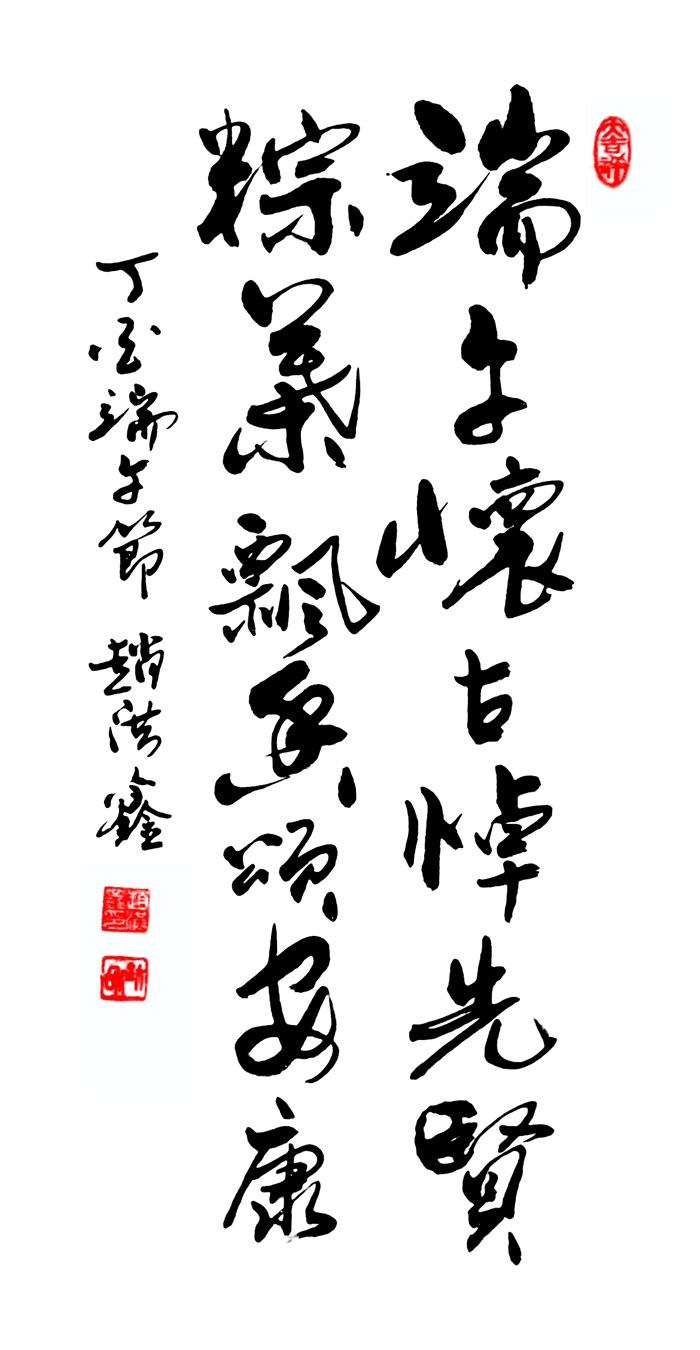 端午懷古悼先賢
粽葉飄香頌安康
丁酉端午節 趙洪鑫